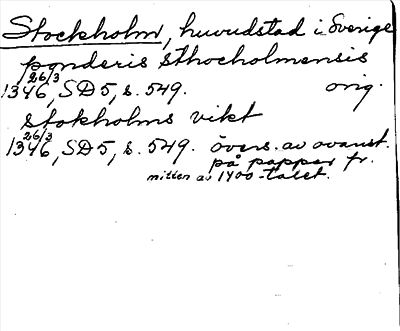 Stockholm, huvudstad i Sverige
ponderis sthocholmensis
26/3
1346, SD5, s. 549. orig.
stokholms vikt
26/3
1346, SD5, s. 549. övers. av ovanst.
på papper fr.
mitten av 1400-talet.